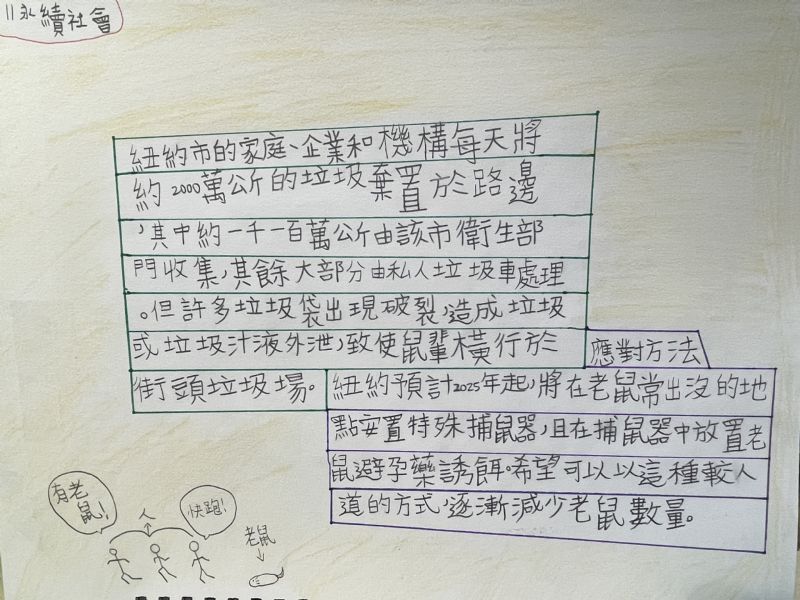 11永續社會
紐約市的家庭、企業和機構每天將
約2000萬公斤的垃圾棄置於路邊
,其中約一千一百萬公斤由該市衛生部
門收集,其餘大部分由私人垃圾車處理
。但許多垃圾袋出現破裂,造成垃圾
或垃圾汁液外泄,致使鼠輩橫行於
街頭垃圾場。
應對方法
紐約預計2025年起,將在老鼠常出沒的地
點安置特殊捕鼠器,且在捕鼠器中放置老
鼠避孕藥誘餌。希望可以以這種較人
道的方式,逐漸減少老鼠數量。
有老
鼠!
人
快跑!
老鼠